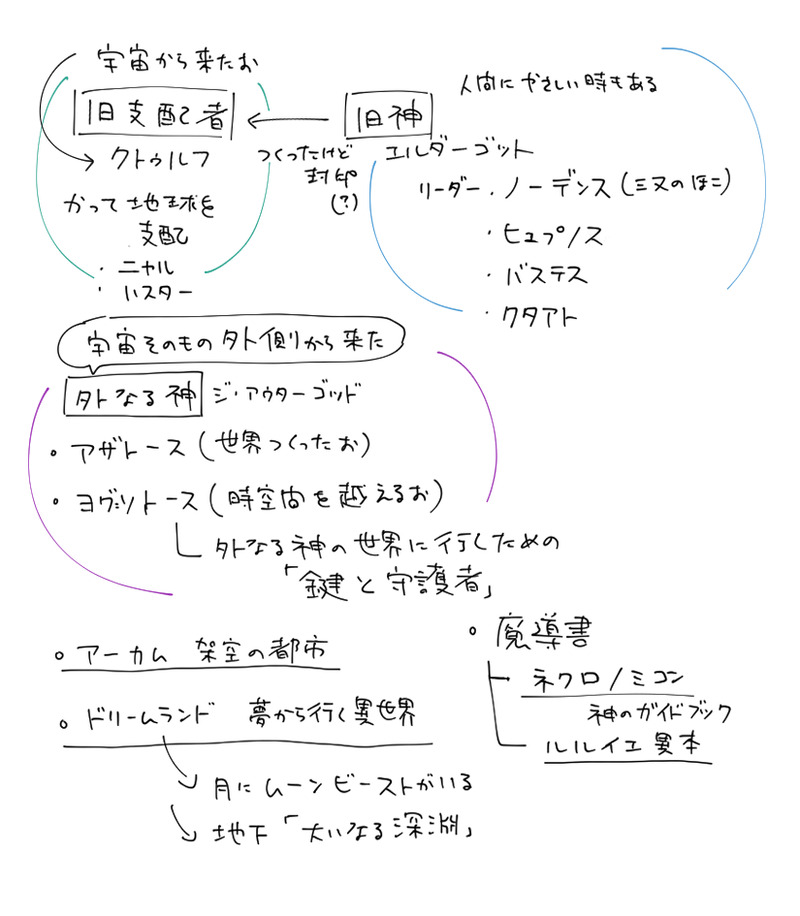 宇宙から来たお
旧支配者
クトゥルフ
かって地球を
支配
・ニャル
・ハスター
つくったけど
封印
(?)
旧神
人間にやさしい時もある
エルダーゴット
リーダー・ノーデンス(三叉のほこ)
・ヒュプノス
・バステス
・クタアト
宇宙そのもの外側から来た
外なる神 ジ・アウターゴッド
・アザトース(世界つくったお)
・ヨグソトース(時空間を越えるお)
外なる神の世界に行くための
「鍵と守護者」
・アーカム 架空の都市
・ドリームランド 夢から行く異世界
月にムーンビーストがいる
地下「大いなる深淵」
・魔導書
ネクロノミコン
神のガイドブック
ルルイエ異本